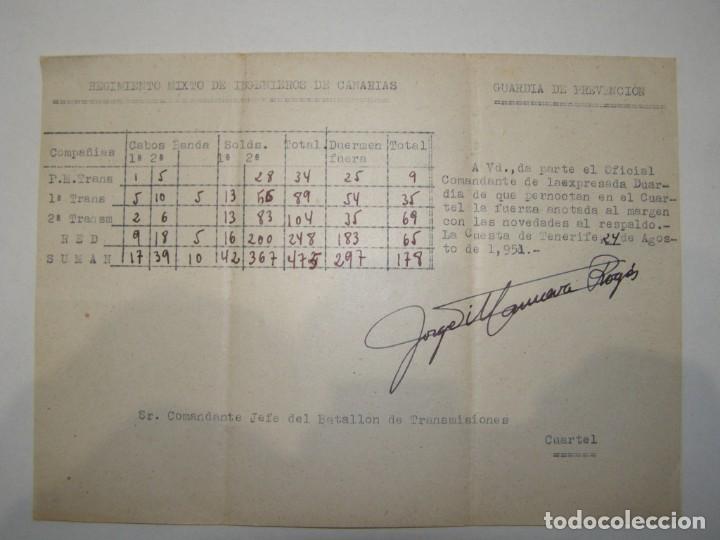 REGIMIENTO MIXTO DE INGENIEROS DE CANARIAS
GUARDIA DE PREVENCION
Compañias Cabos Banda Solds. Total. Duermen Total
1ª 2ª 1ª 2ª fuera
P.M.Trans 1 5 28 34 25 9
1ª Trans 5 10 5 13 56 89 54 35
2ª Transm 2 6 13 83 104 35 69
R E D 9 18 5 16 200 248 183 65
S U M A N 17 39 10 42 367 475 297 178
A Vd., da parte el Oficial
Comandante de laexpresada Duar-
dia de que pernoctan en el Cuar-
tel la fuerza anotada al margen
con las novedades al respaldo.-
La Cuesta de Tenerife 24 de Agos-
to de 1,951.-
Jorge Villanueva Rogés
Sr. Comandante Jefe del Batallon de Transmisiones
Cuartel
todocoleccion
todocoleccion.net